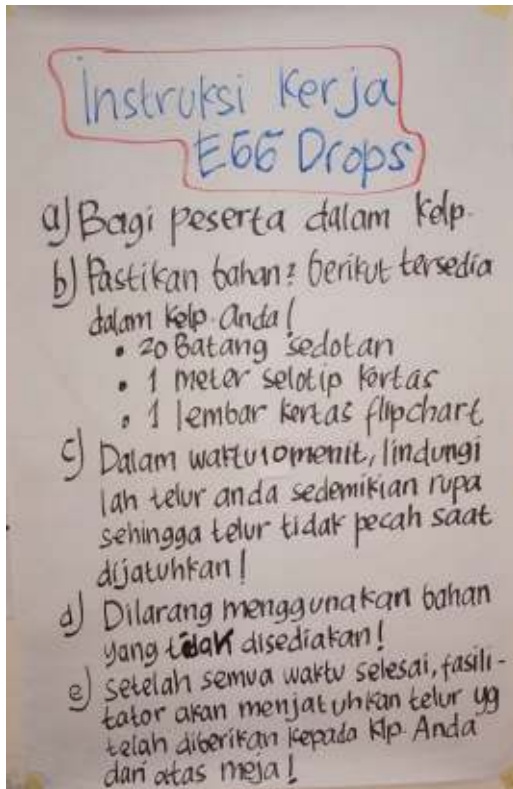 Instruksi Kerja
EGG Drops
a) Bagi peserta dalam Kelp.
b) Pastikan bahan2 berikut tersedia
dalam Kelp. Anda!
• 20 Batang sedotan
• 1 meter selotip kertas
• 1 lembar kertas flipchart
c) Dalam waktu 10 menit, lindungi
lah telur anda sedemikian rupa
sehingga telur tidak pecah saat
dijatuhkan!
d) Dilarang menggunakan bahan
yang tidak disediakan!
e) Setelah semua waktu selesai, fasili-
tator akan menjatuhkan telur yg
telah diberikan kepada Klp. Anda
dari atas meja!